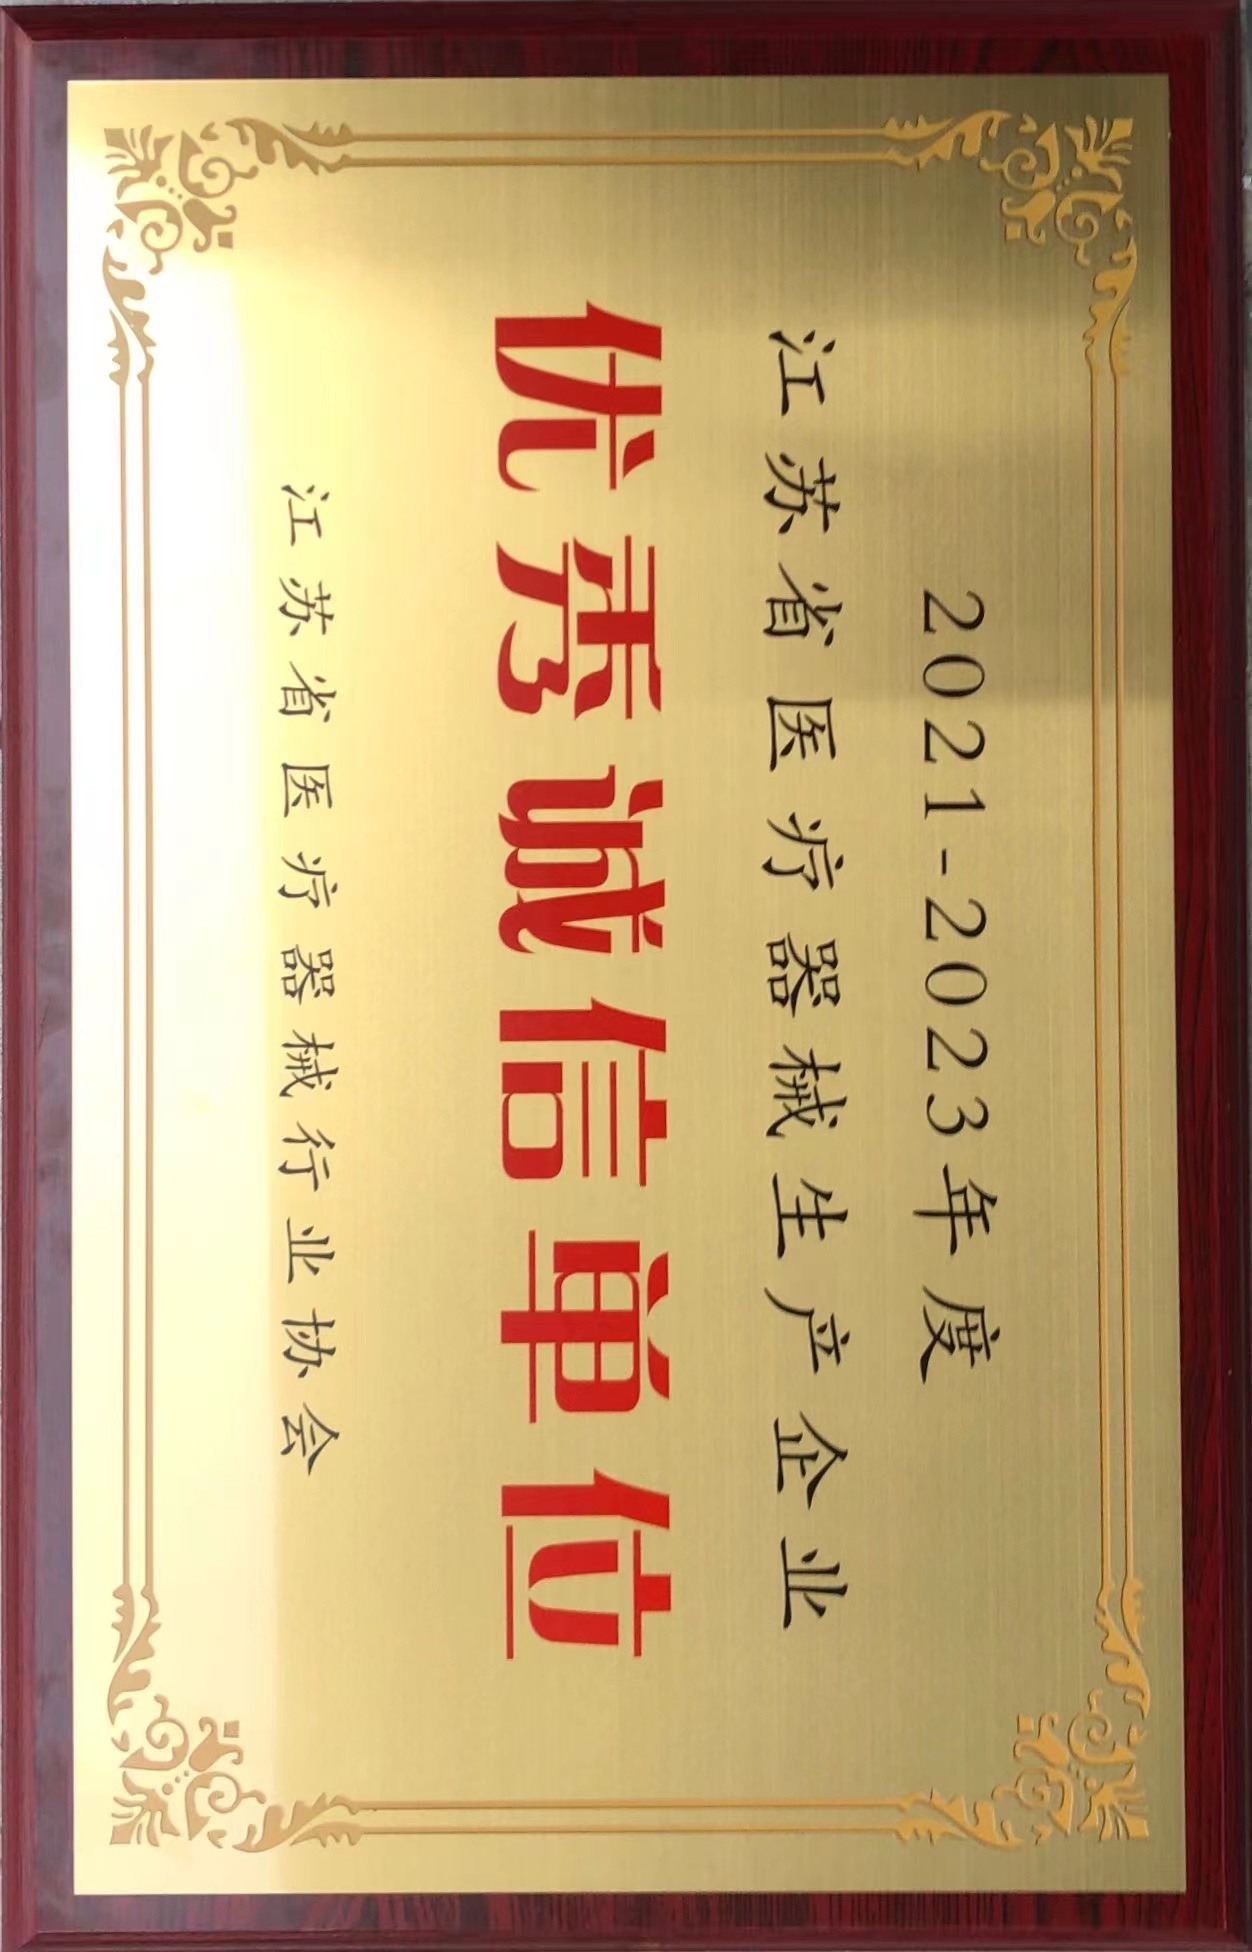 2021-2023年度
江苏省医疗器械生产企业
优秀诚信单位
江苏省医疗器械行业协会